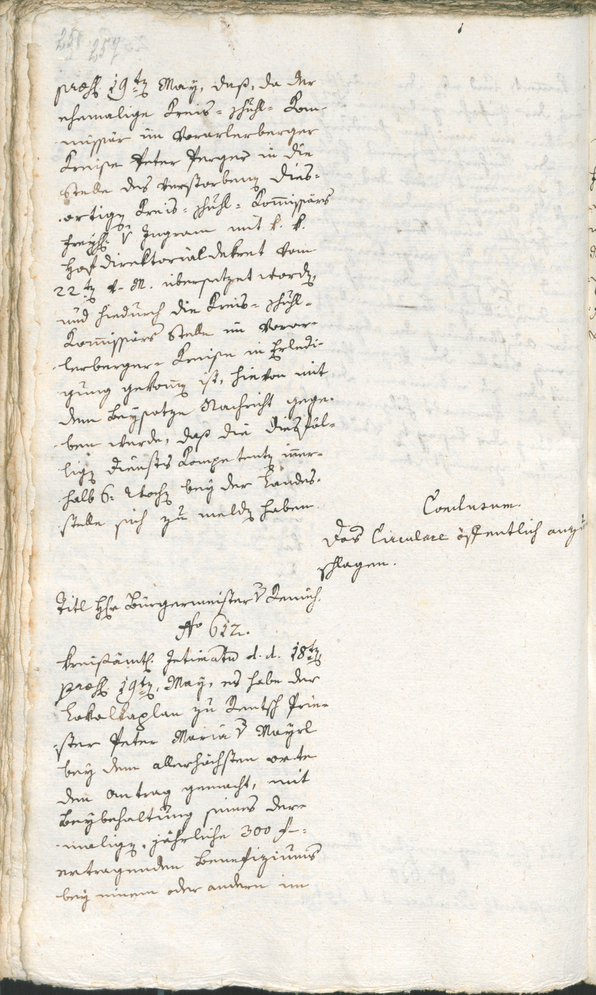 præs. 19ten May, daß, da der
ehemalige Kreis-Schuhl-Kom-
missär im Vorarlerberger
Kreise Peter Perger in die
Stelle des verstorbenen dies-
ortigen Kreis-Schuhl-Kommissärs
Freyh. v Ingram mit k. k.
Hofdirektorialdekret vom
22ten v. M. übersetzet worden,
und hiedurch die Kreis-Schuhl-
Kommissärs Stelle im Vorar-
lerberger-Kreise in Erledi-
gung gekommen ist, hievon mit
dem Beysatze Nachricht gege-
ben werde, daß die diesfäl-
ligen Dienstes Kompetenten inner-
halb 6 Wochen bey der Landes-
stelle sich zu melden haben.
Conclusum.
Das Circulare öffentlich anzu
schlagen.
Titl Hr Bürgermeister v
No 612.
Kreisämtl. Intimatum d. d. 18ten
præs. 19ten May, es habe der
Lokalkaplan zu Rentsch Prie-
ster Peter Maria v Mayrl
bey dem allerhöchsten Orte
den Antrag gemacht, mit
Beybehaltung seines der-
maligen, jährliche 300 f
ertragenden Benefiziums
bey einem oder andern im